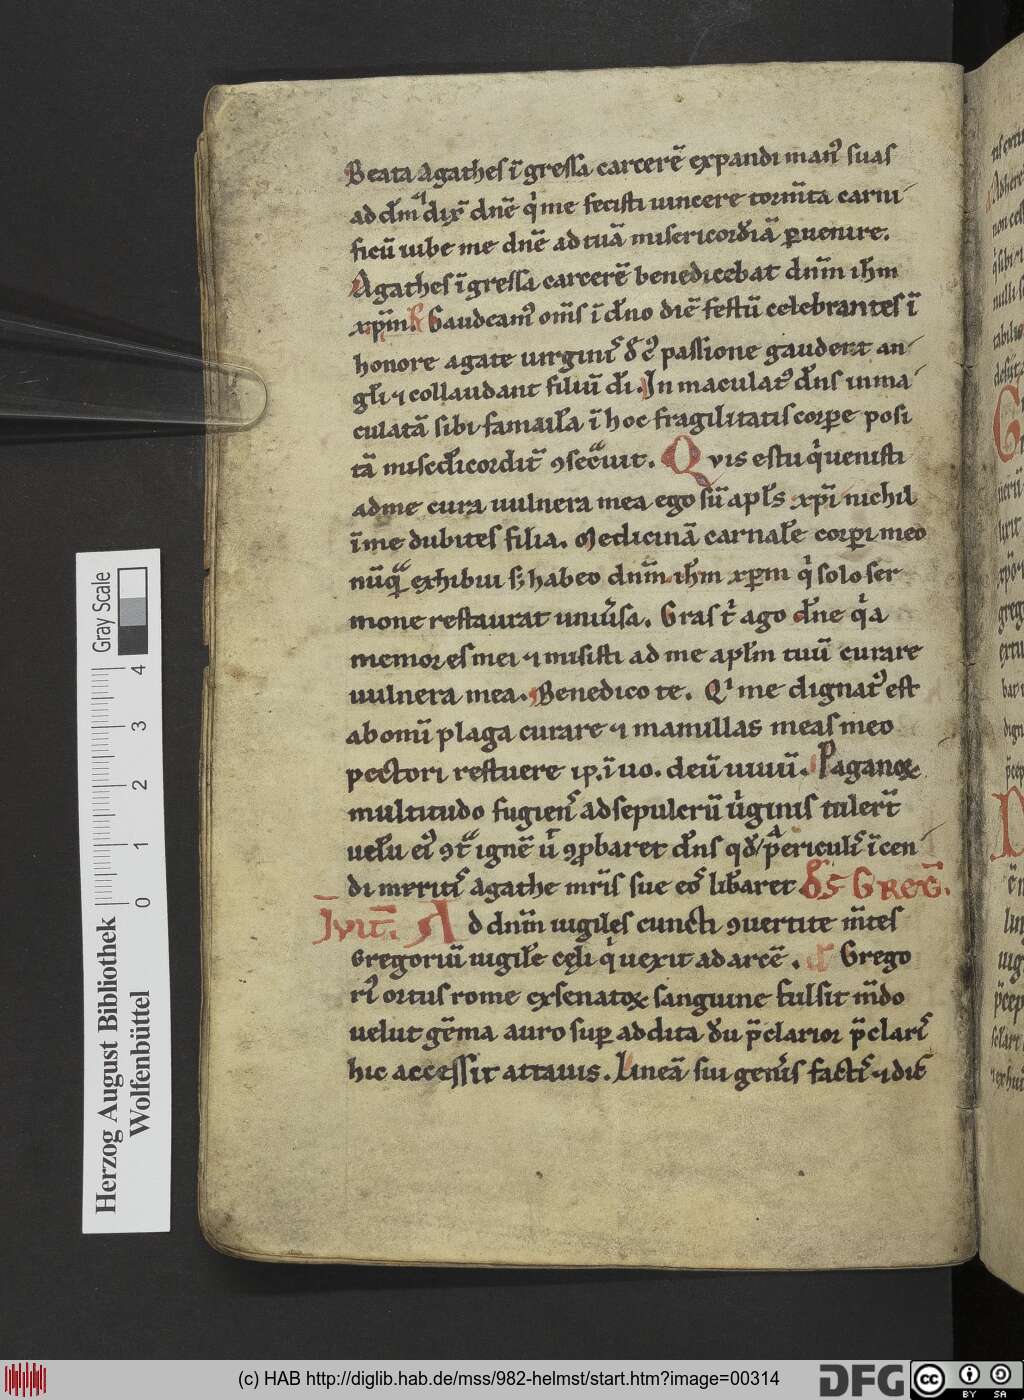 Beata Agathes ī gressa carcerē expandi man᷒ suas
ad dm̄ dix̄ dn̄e q̇ me fecisti uincere torm̄ta carni
ficū iube me dn̄e ad tuā misericordiā ꝑuenire.
Agathes ī gressa carcerē benedicebat dnm̄ ih̄m
xp̄m Gaudeam᷒ om̄s ī dn̄o diē festū celebrantes ī
honore agate uirgini᷒ passione gaudent an
gl̄i ⁊ collaudant filiū dī. In maculat᷒ dn̄s inma
culatā sibi famul̄a ī hoc fragilitatis corꝑe posi
tā misericordit̄ ꝯsecuit. Qvis es tu q̇ uenisti
ad me cura uulnera mea ego sū apl̄s xp̄i nichil
ī me dubites filia. Medicinā carnal̄e corꝑi meo
nūq̄ exhibui sꝫ habeo dnm̄ ih̄m xp̄m q̇ solo ser
mone restaurat uniūsa. Gras t̄ ago dn̄e q̇a
memor es mei ⁊ misisti ad me apl̄m tuū curare
uulnera mea. Benedico te. Qi me dignat᷒ est
ab omī plaga curare ⁊ mamillas meas meo
pectori restuere ip. īuo. deū uiuū. Paganoꝝ
multitudo fugien᷒ ad sepulcrū ūginis tulert̄
uelū ei᷒ ꝯt̄ ignē ꝯꝓbaret dn̄s qđ a periculi᷒ īcen
di meriti᷒ agathe mr̄is sue eo᷒ lib̄aret DS GREG̅.
Ivit̄. Ad dnm̄ uigiles cuncti ꝯuertite m̄tes
Gregoriū uigil̄e celi q̇ uexit ad arcē. Grego
ri᷒ ortus rome ex senatoꝝ sanguine fulsit m̄do
uelut gēma auro suꝑ addita dū p̄clarior p̄clari᷒
hic accessit attauis. Lineā sui gen̄is facti᷒ ⁊ dic̄
Gray Scale
0 1 2 3 4
Herzog August Bibliothek
Wolfenbüttel
(c) HAB http://diglib.hab.de/mss/982-helmst/start.htm?image=00314
DFG
cc BY SA